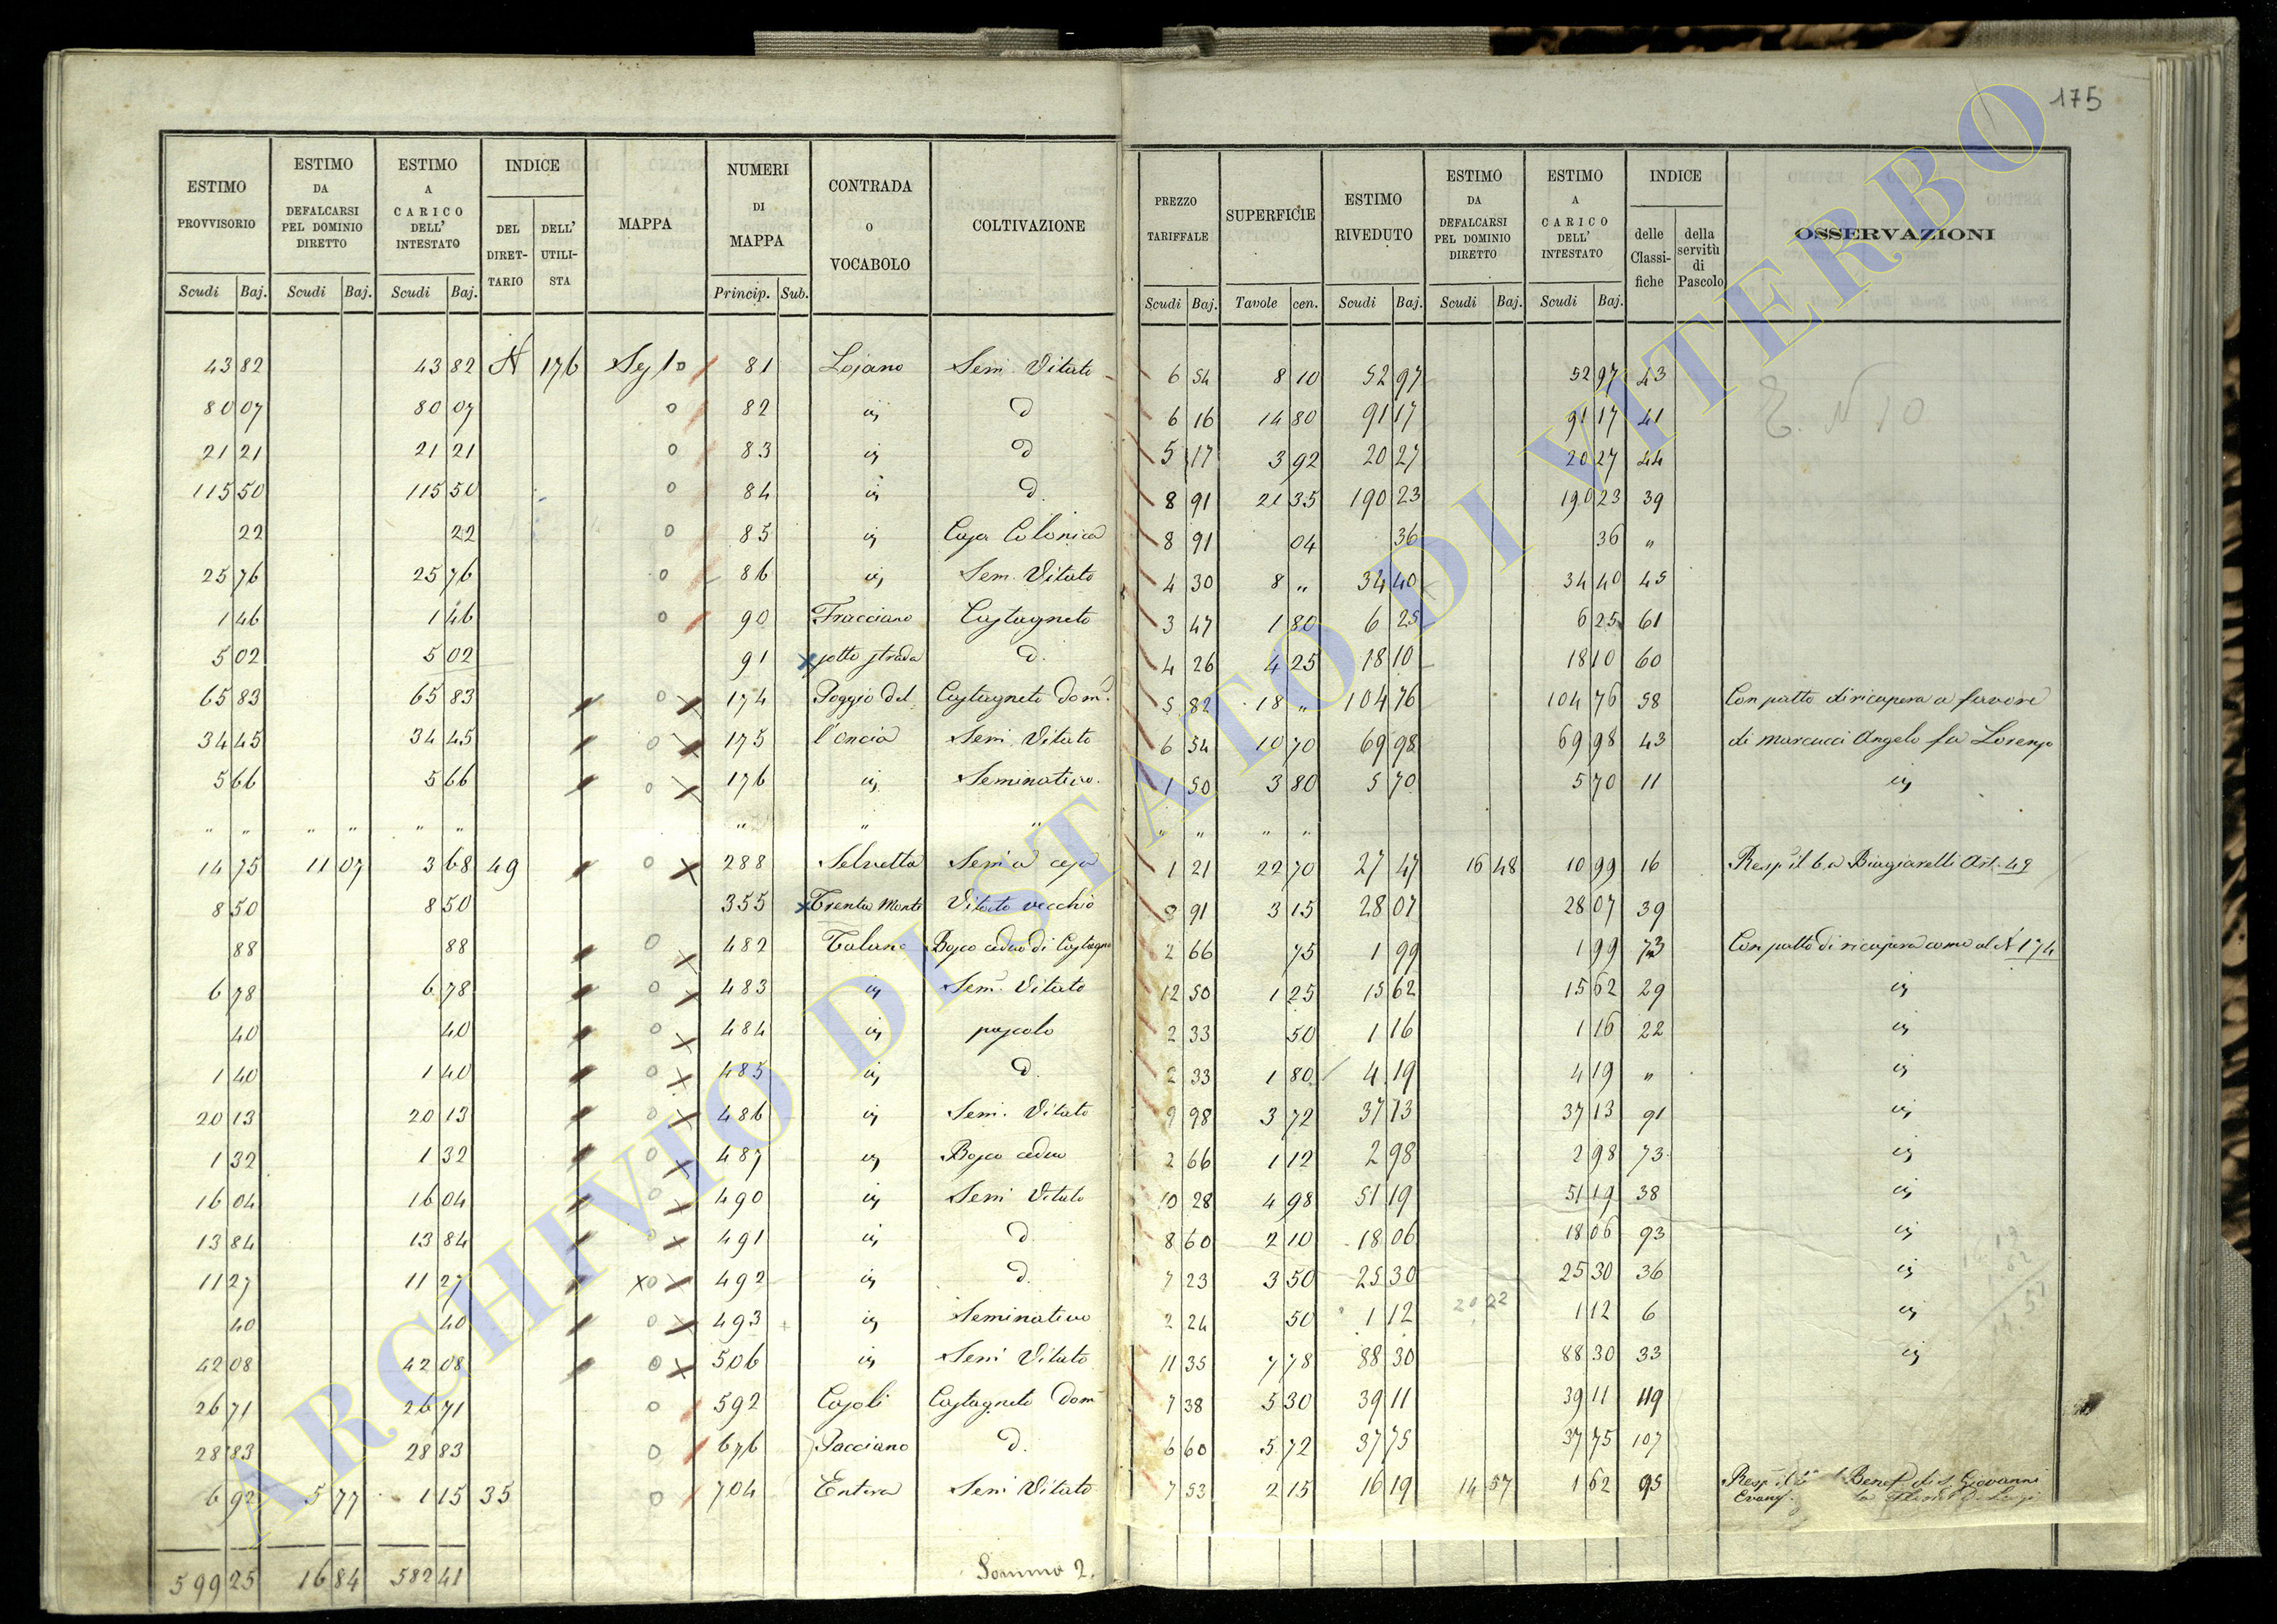 175
ESTIMO PROVVISORIO Scudi Baj. ESTIMO DA DEFALCARSI PEL DOMINIO DIRETTO Scudi Baj. ESTIMO A CARICO DELL' INTESTATO Scudi Baj. INDICE DEL DIRET-TARIO DELL' UTILI-STA MAPPA NUMERI DI MAPPA Princip. Sub. CONTRADA O VOCABOLO COLTIVAZIONE PREZZO TARIFFALE Scudi Baj. SUPERFICIE Tavole cen. ESTIMO RIVEDUTO Scudi Baj. ESTIMO DA DEFALCARSI PEL DOMINIO DIRETTO Scudi Baj. ESTIMO A CARICO DELL' INTESTATO Scudi Baj. INDICE delle Classi-fiche della servitù di Pascolo OSSERVAZIONI
43 82 43 82 N 176 81 Lojano Sem. Vitato 6 54 8 10 52 97 52 97 43
80 07 80 07 o 82 id d 6 16 14 80 91 17 91 17 41 E. N 10
21 21 21 21 o 83 id d 5 17 3 92 20 27 20 27 44
115 50 115 50 o 84 id d. 8 91 21 35 190 23 190 23 39
22 22 o 85 id Casa Colonica 8 91 04 36 36 "
25 76 25 76 o 86 id Sem. Vitato 4 30 8 " 34 40 34 40 45
1 46 1 46 o 90 Fracciano Castagneto 3 47 1 80 6 25 6 25 61
5 02 5 02 91 x sotto strada d. 4 26 4 25 18 10 18 10 60
65 83 65 83 o x 174 Poggio del Castagneto Dom. 5 82 18 " 104 76 104 76 58 Con patto di ricupera a favore
34 45 34 45 o x 175 l'oncia Sem. Vitato 6 54 10 70 69 98 69 98 43 di Marcucci Angelo fu Lorenzo
5 66 5 66 o x 176 id Seminativo. 1 50 3 80 5 70 5 70 11 id
" " " " " " " " " " " " "
14 75 11 07 3 68 49 o x 288 Selvetta Sem a 1 21 22 70 27 47 16 48 10 99 16 Biagiarelli Art. 49
8 50 8 50 355 x Trenta Monte Vitato vecchio 8 91 3 15 28 07 28 07 39
88 88 o x 482 Bosco ceduo di Castagno 2 66 75 1 99 1 99 73 Con patto di ricupera come al N 174
6 78 6 78 o x 483 id Sem. Vitato 12 50 1 25 15 62 15 62 29 id
40 40 o x 484 id pascolo 2 33 50 1 16 1 16 22 id
1 40 1 40 o x 485 id d. 2 33 1 80 4 19 4 19 " id
20 13 20 13 o x 486 id Sem. Vitato 9 98 3 72 37 13 37 13 91 id
1 32 1 32 o x 487 id Bosco ceduo 2 66 1 12 2 98 2 98 73 id
16 04 16 04 o x 490 id Sem Vitato 10 28 4 98 51 19 51 19 38 id
13 84 13 84 o x 491 id d. 8 60 2 10 18 06 18 06 93 id
11 27 11 27 x o x 492 id d. 7 23 3 50 25 30 25 30 36 id
40 40 o x 493 id Seminativo 2 24 50 1 12 1 12 6 id
42 08 42 08 o x 506 id Sem Vitato 11 35 7 78 88 30 88 30 33 id
26 71 26 71 o 592 Casoli Castagneto Dom 7 38 5 30 39 11 39 11 119
28 83 28 83 o 676 Pacciano d. 6 60 5 72 37 75 37 75 107
6 92 5 77 1 15 35 o 704 Entera Sem Vitato 7 53 2 15 16 19 14 57 1 62 95 Benef. di S. Giovanni
Evang.
599 25 16 84 582 41 Somma 2.
ARCHIVIO DI STATO DI VITERBO